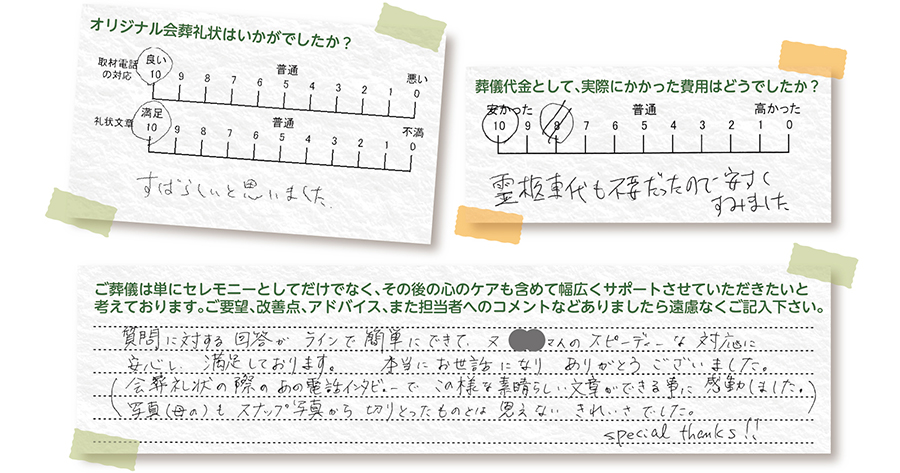 オリジナル会葬礼状はいかがでしたか？
取材電話の対応
良い 普通 悪い
10 9 8 7 6 5 4 3 2 1 0
礼状文章
満足 普通 不満
10 9 8 7 6 5 4 3 2 1 0
すばらしいと思いました.
葬儀代金として、実際にかかった費用はどうでしたか？
安かった 普通 高かった
10 9 8 7 6 5 4 3 2 1 0
霊柩車代も不要だったので安く
すみました
ご葬儀は単にセレモニーとしてだけでなく、その後の心のケアも含めて幅広くサポートさせていただきたいと
考えております。ご要望、改善点、アドバイス、また担当者へのコメントなどありましたら遠慮なくご記入下さい。
質問に対する回答がラインで簡単にできて、又 さんのスピーディーな対応に
安心し、満足しております。 本当にお世話になり ありがとうございました。
(会葬礼状の際のあの電話インタビューで この様な素晴らしい文章ができる事に感動しました。
写真(母の)も スナップ写真から 切りとったものとは 思えない きれいさでした。)
special thanks!!